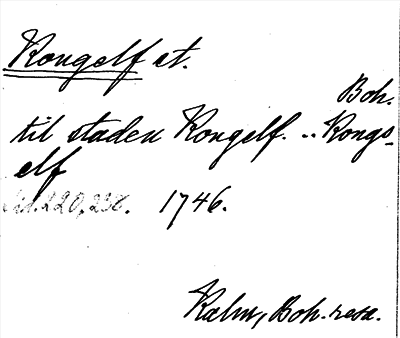 Kongelf st.
Boh.
til staden Kongelf. .. Kongs-
elf
Sid. 220, 258. 1746.
Kalm, Boh. resa.